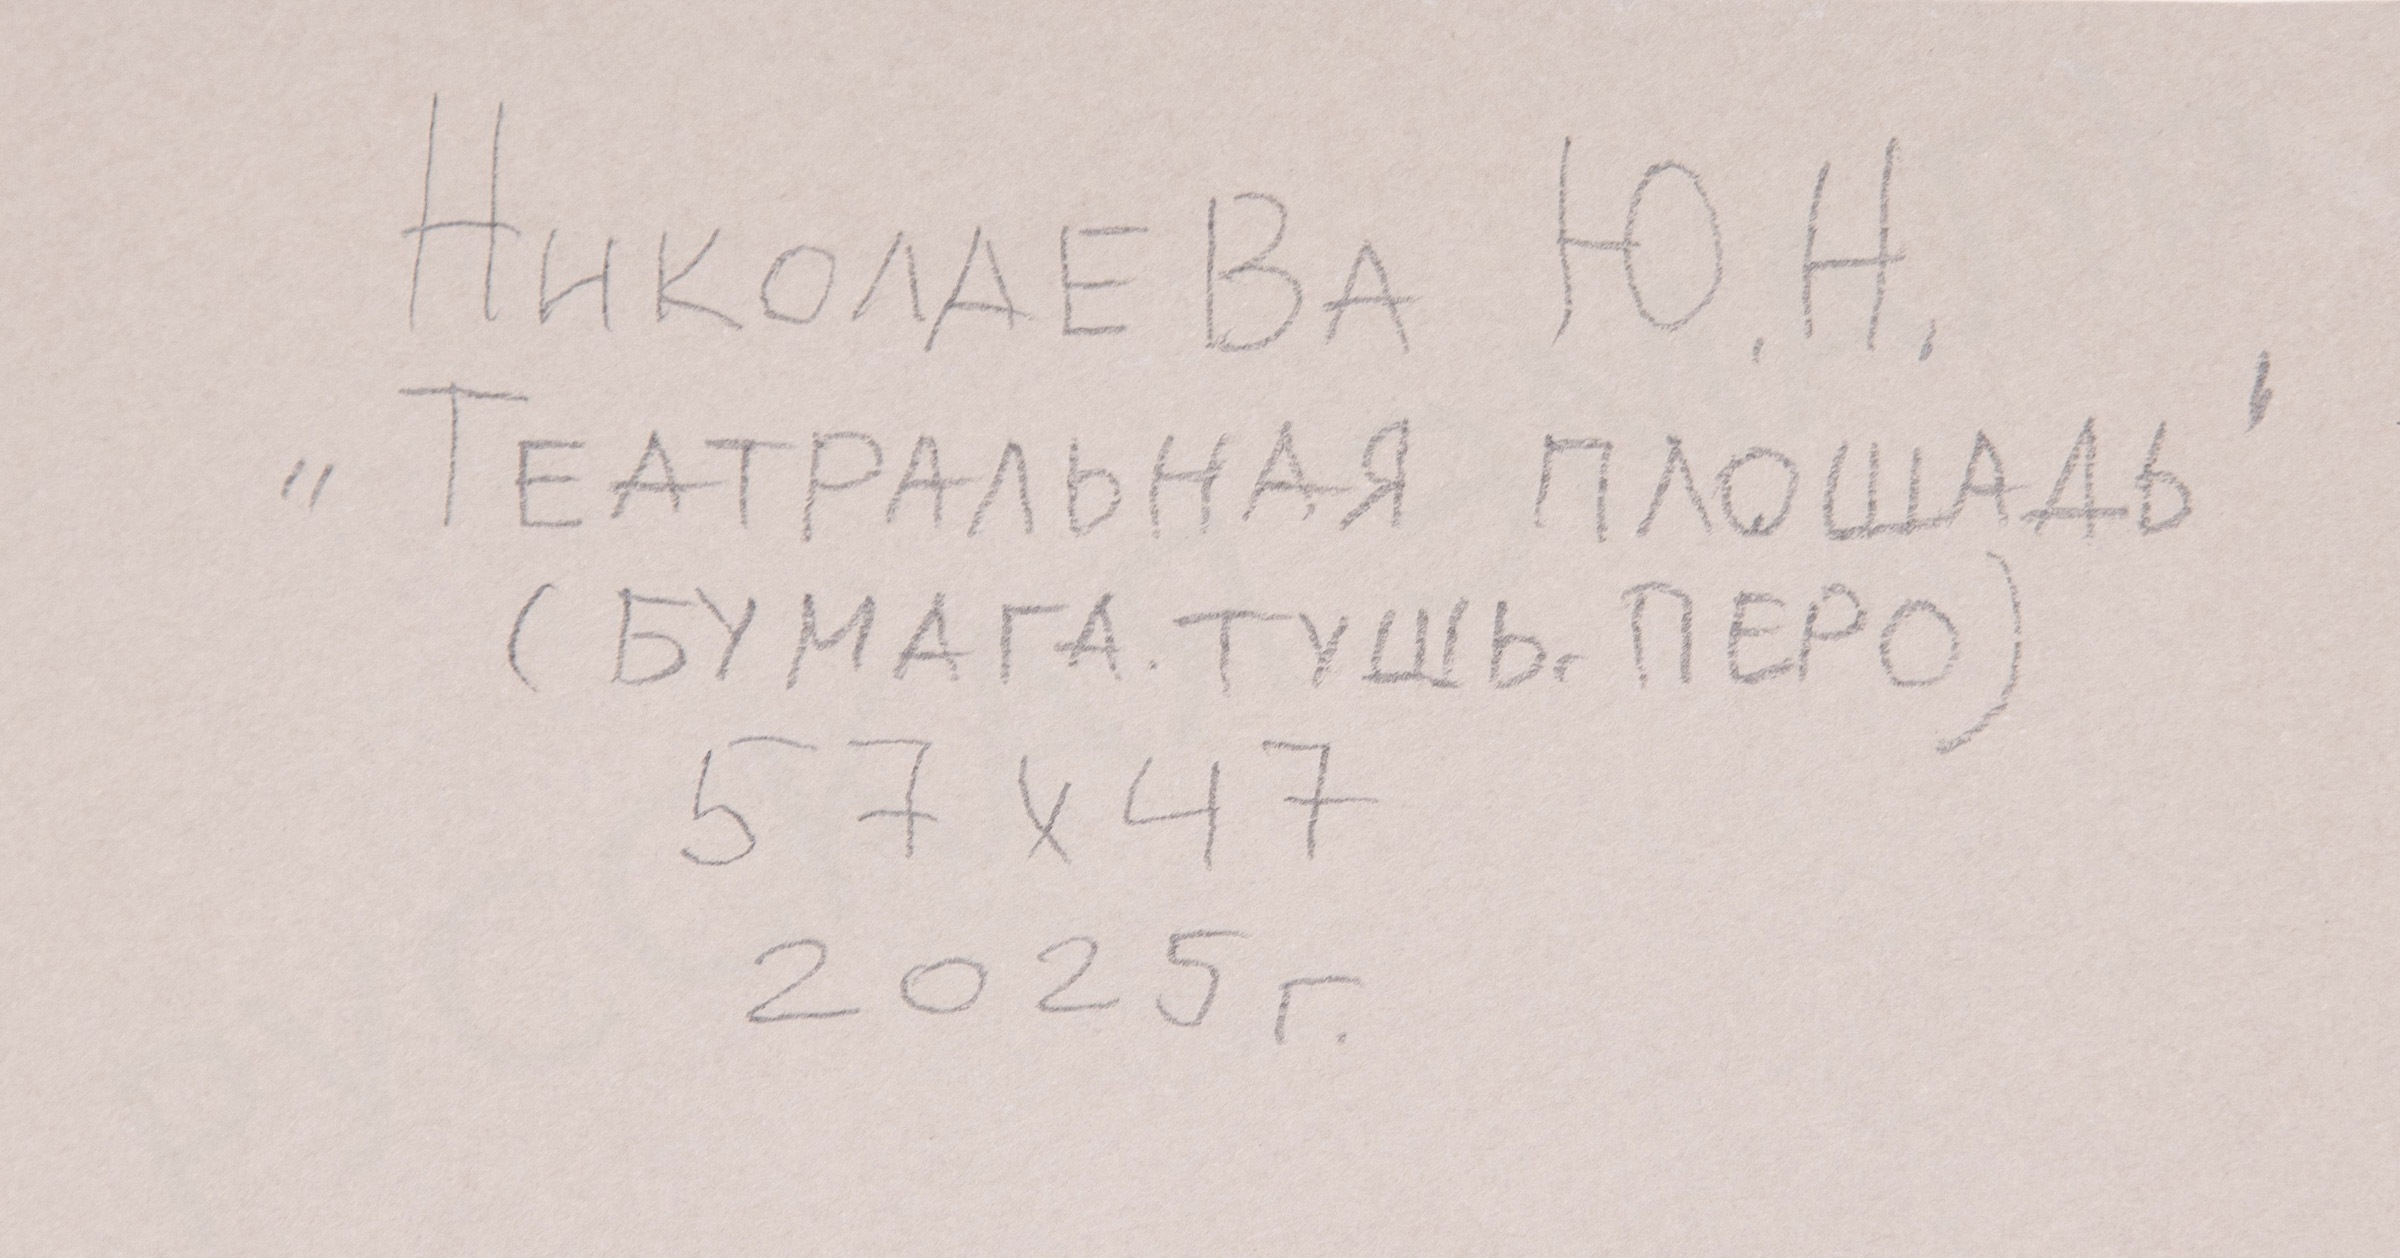 Николаева Ю.Н.
"Театральная площадь"
(бумага. тушь. перо)
57х47
2025г.